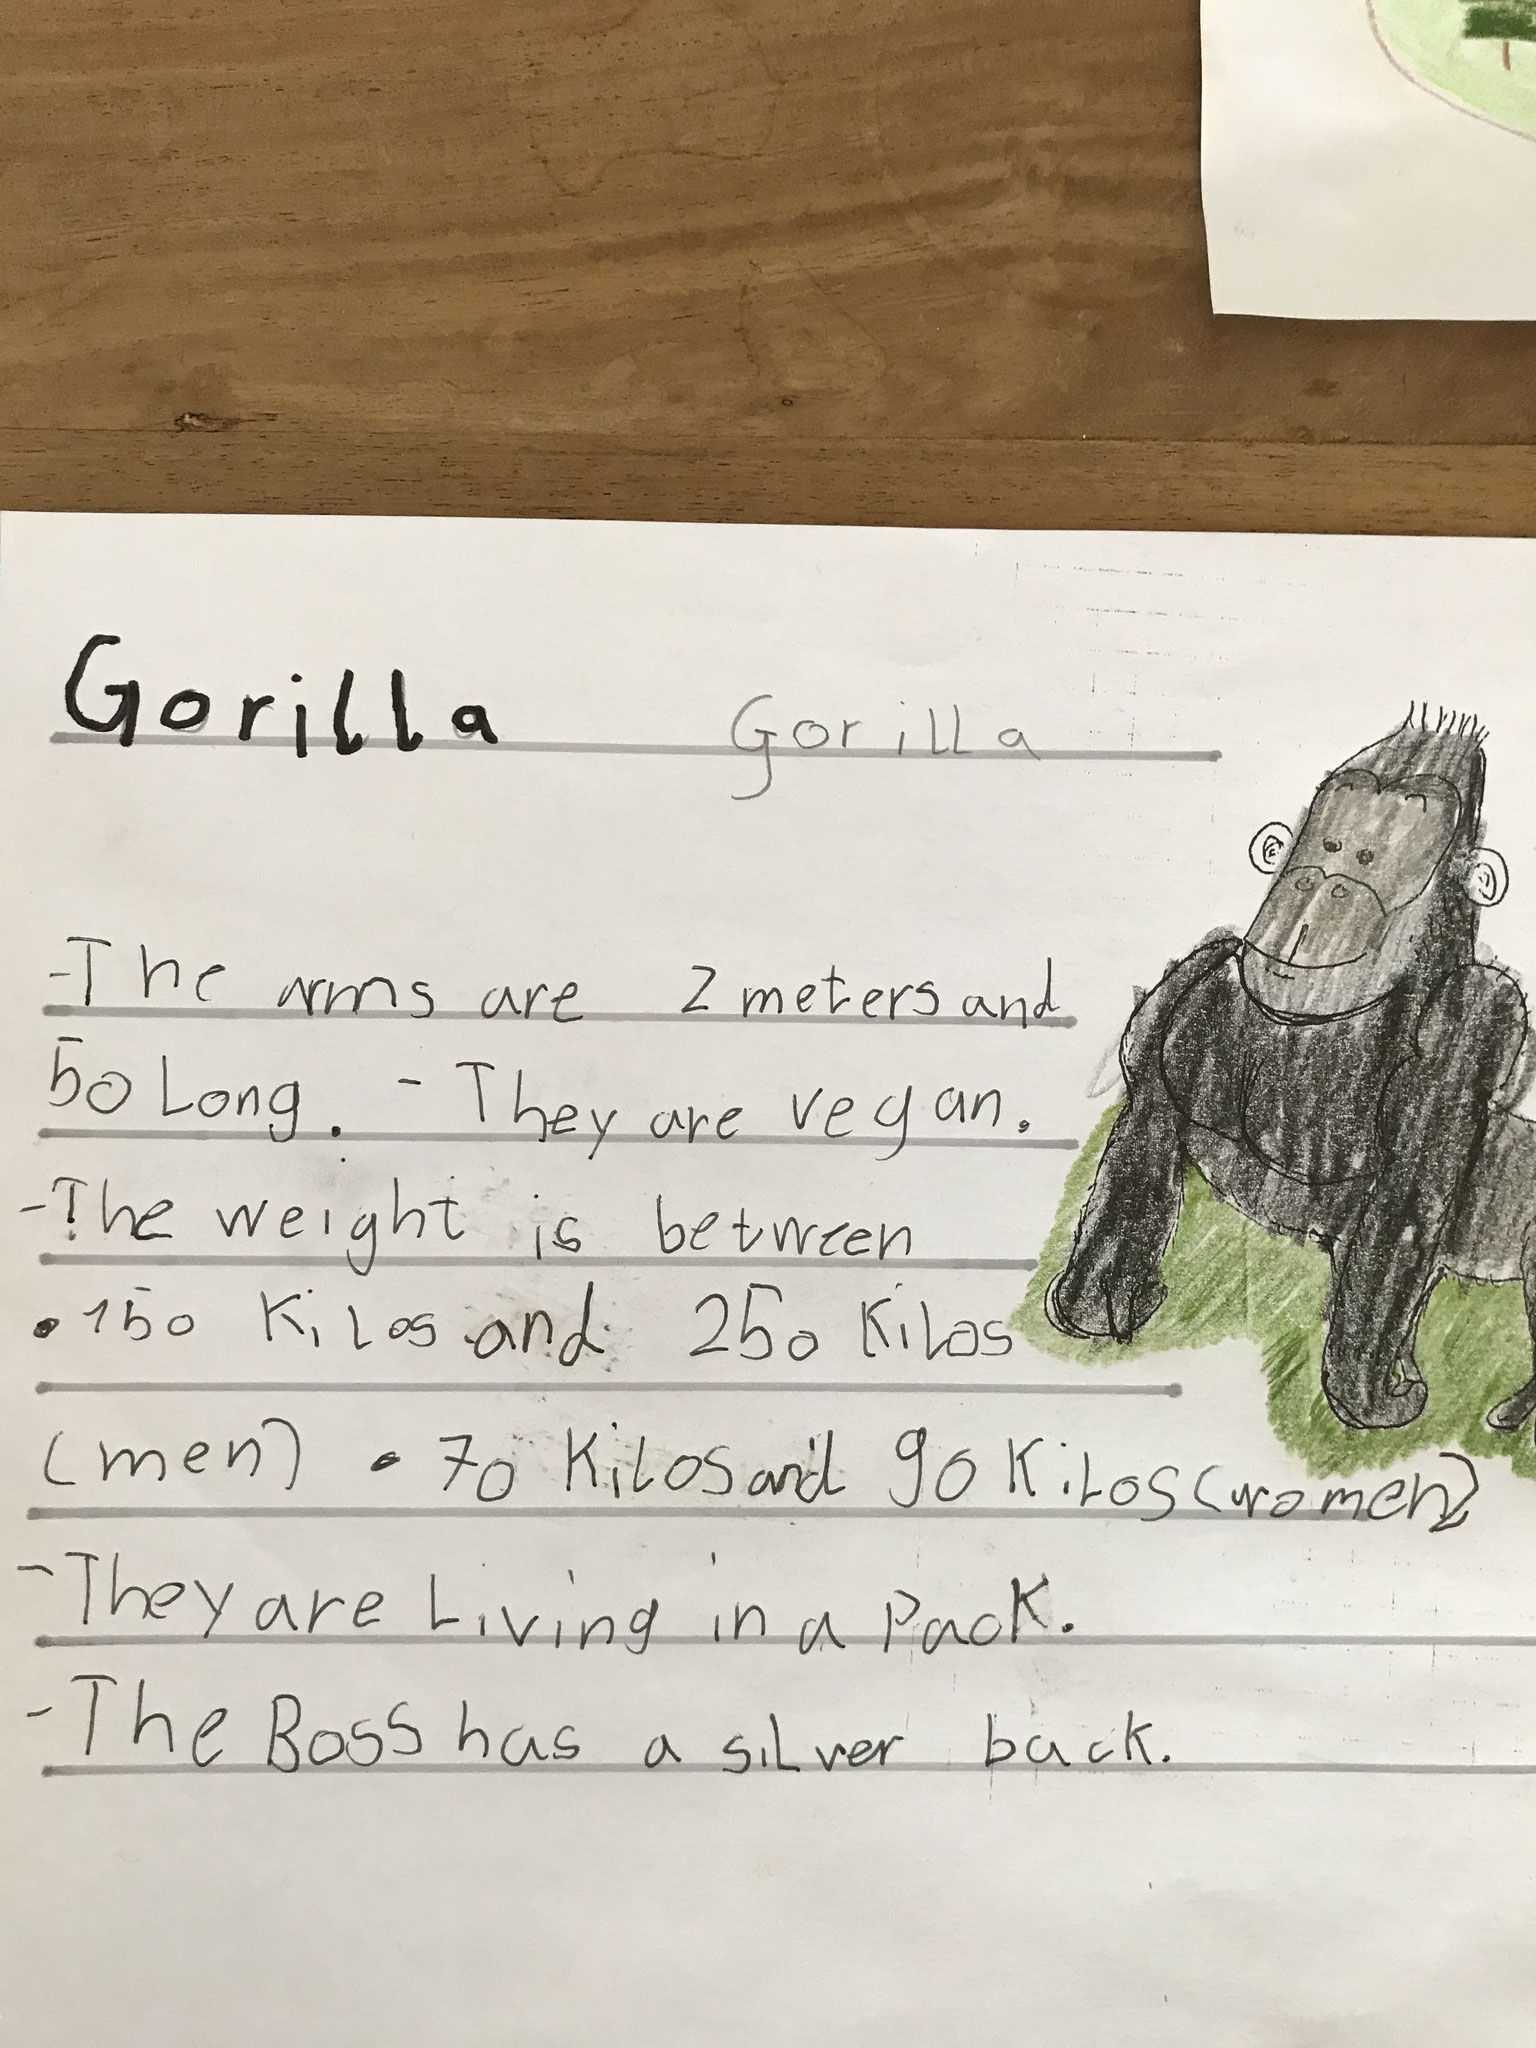 Gorilla Gorilla
-The arms are 2 meters and
50 Long. - They are vegan.
-The weight is between
• 150 Kilos and 250 Kilos
(men) • 70 Kilos and 90 Kilos (women)
-They are Living in a Pack.
-The Boss has a silver back.